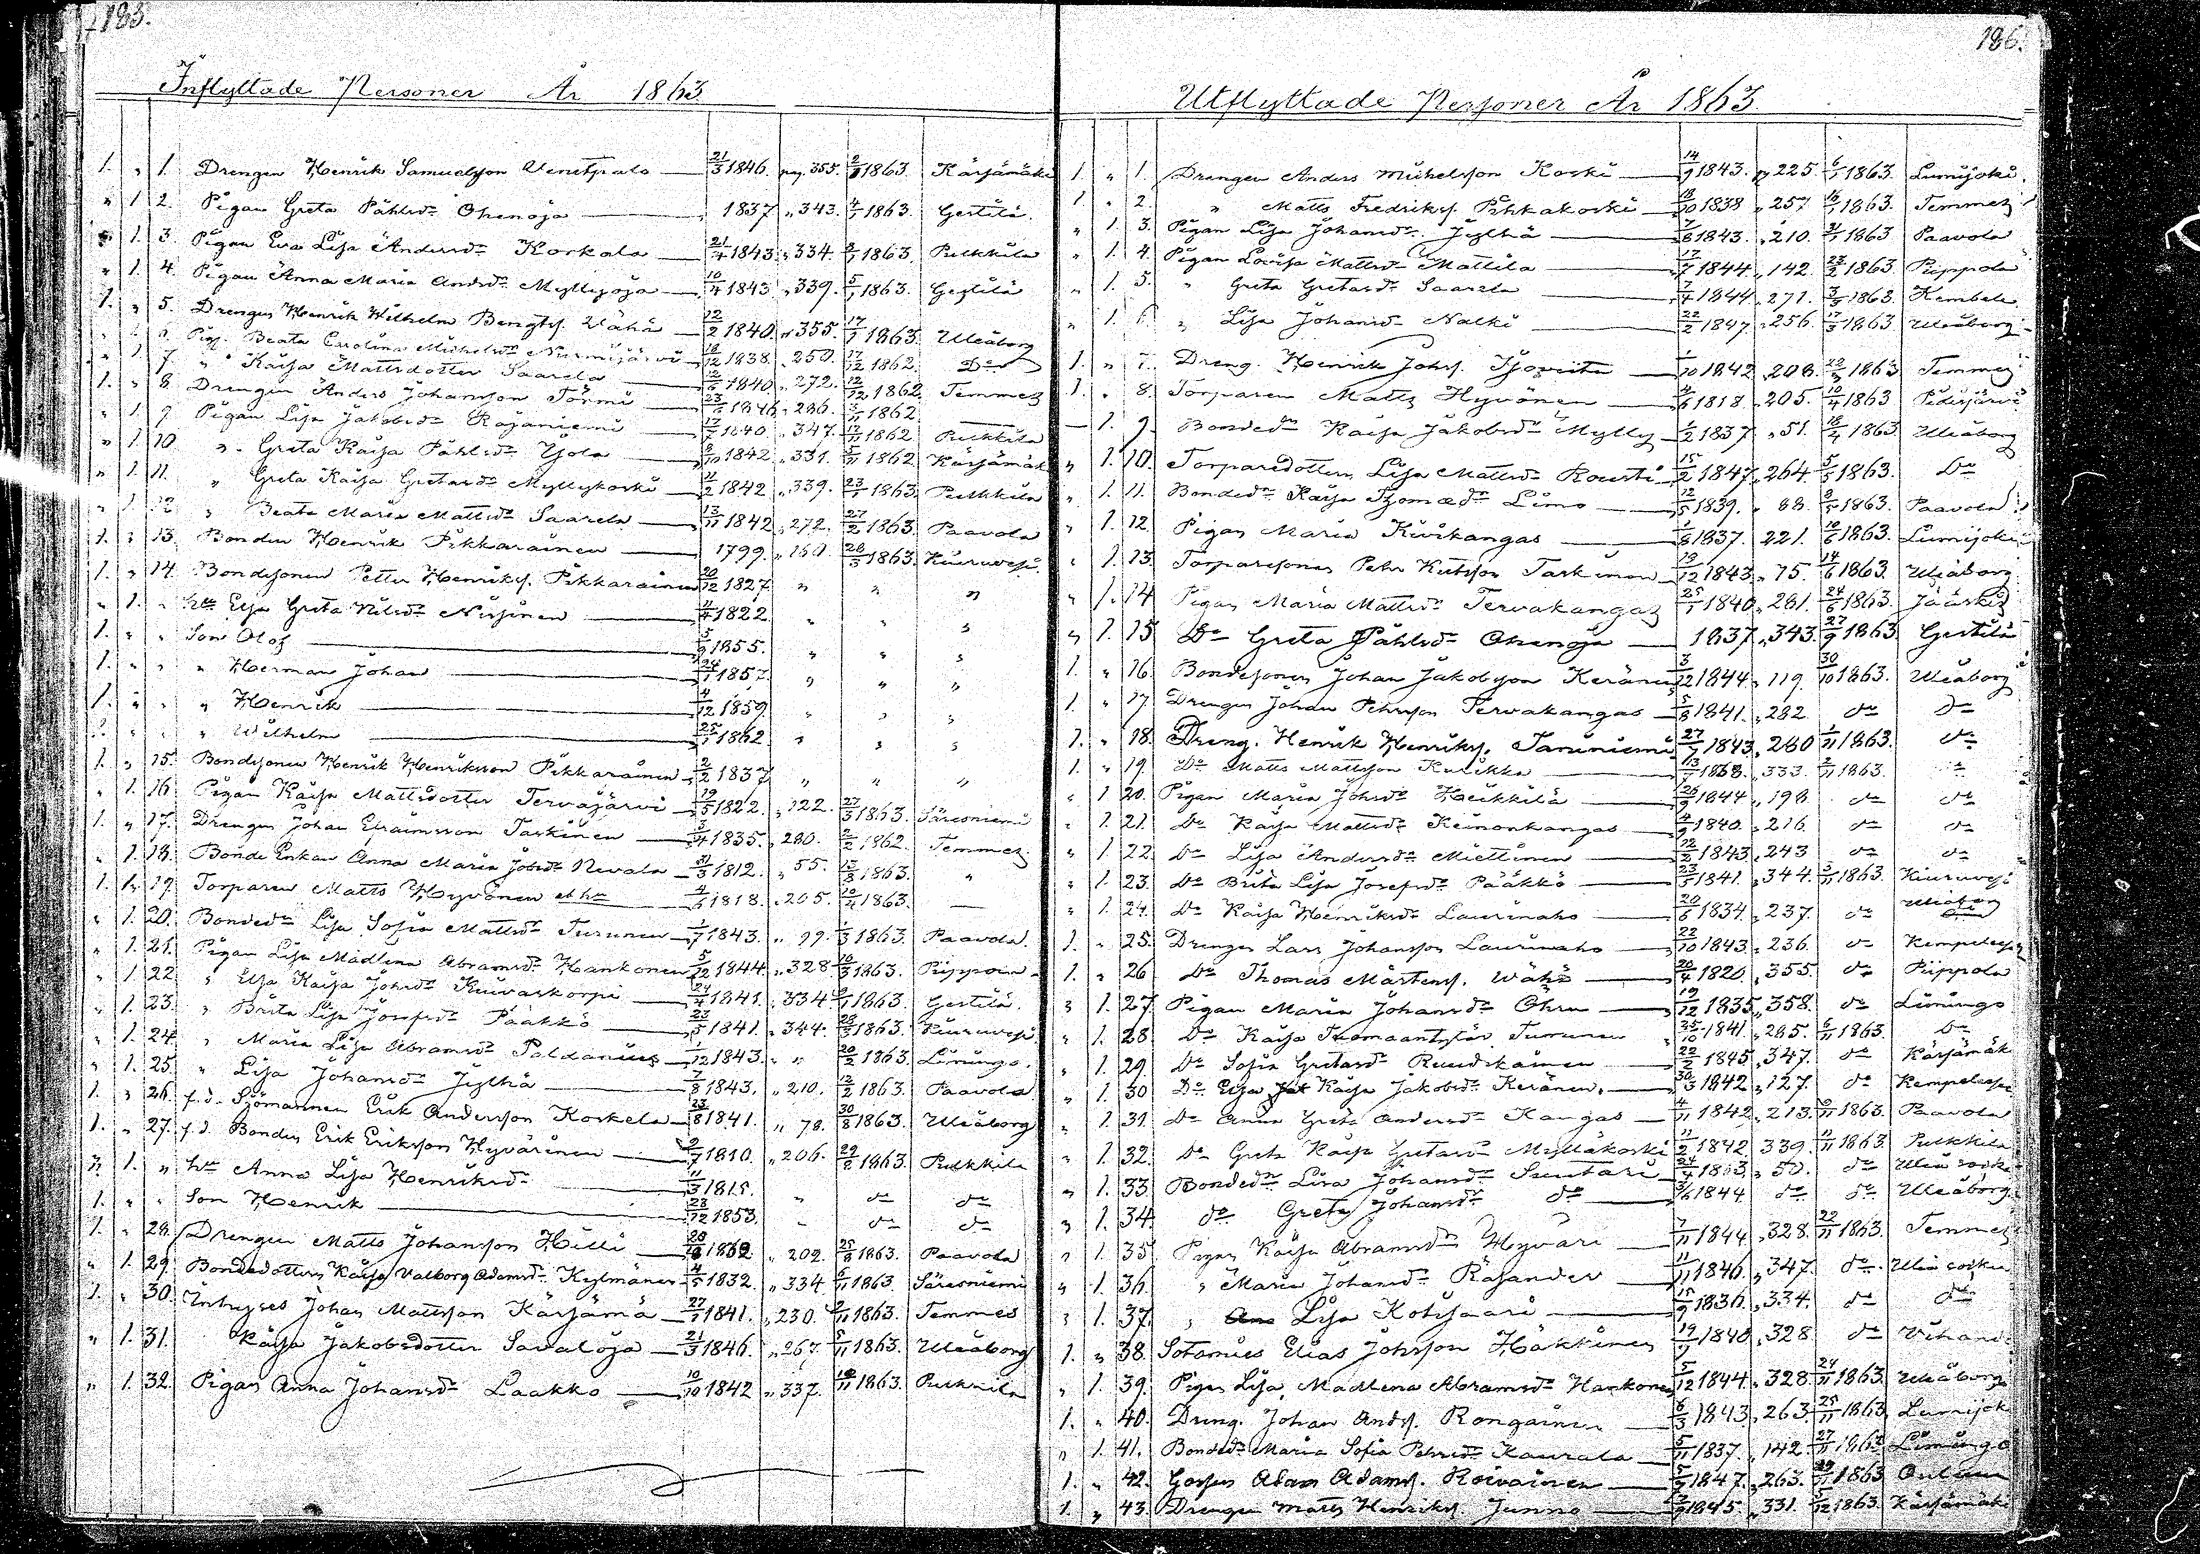 183.
Inflyttade Personer År 1863
1. " 1. Drengen Henrik Samuelsson Venetpalo 21/3 1846. pag. 355. 1863. Kärsämäki
" 1 2. Pigan Greta Påhlsdr Ohenoja 1837 " 343. 4/1 1863. Gestilä.
" 1. 3. Pigan Eva Lisa Andersdr Korkala 21/4 1843 " 334. 2/1 1863. Pulkkila
" 1. 4. Pigan Anna Maria Andrsdr Myllyoja 10/4 1843 " 339. 5/1 1863. Gestilä
1. " 5. Drengen Henrik Wilhelm Bengtss. Vähä 12/2 1840. " 355. 17/1 1863. Uleåborg
Pig. Beata Carolina Michelsdr Nurmijärvi 1838. " 250. 17/12 1862. Do
" 1 7. " Kaisa Mattsdotter Saarela 1840. " 272. 12/12 1862. Temmes
1. " 8. Drengen Anders Johansson Törmi 1846 " 286. 1862.
" 1. 9. Pigan Lisa Jakobsdr Rajaniemi 1840. " 347. 17/11 1862 Pulkkila
" 1. 10. " Greta Kaisa Påhlsdr Yjola 1842 " 331. 1862 Kärsämäk
" 1. 11. " Greta Kaisa Gretasdr Myllykoski 11/2 1842 " 339. 23/1 1863. Pulkkila
" 1. 12 " Beata Maria Mattsdr Saarela 13/11 1842 " 272. 27/2 1863. Paavola
1. " 13. Bonden Henrik Pikkarainen 1799. " 160. 28/5 1863. Kiuruvesi.
1. " 14. Bondesonen Petter Henrikss. Pikkarainen 20/12 1827. " " "
" 1. " hu Elsa Greta Nilsdr Nissinen 11/4 1822. " " "
1. " " Son Olof 5/9 1855. " " "
1. " " " Herman Johan 24/1 1857. " " "
1. " " " Henrik 4/12 1859 " " "
" " " Wilhelm 25/1 1862. " " "
1. " 15. Bondesonen Henrik Henriksson Pikkarainen 2/2 1837 " " "
" 1. 16. Pigan Kaisa Mattsdotter Tervajärvi 19/5 1822. " 122. 27/3 1863. Säresniemi
1. " 17. Drengen Johan Efraimsson Taskinen 3/4 1835. " 280. 2/2 1862. Temmes
" 1. 18. Bonde Enkan Anna Maria Johsdr Nevala 31/3 1812. " 55. 13/3 1863. "
1. 1. 19. Torparen Matts Hyvönen et hu 4/6 1818. " 205. 10/4 1863. —
" 1. 20. Bondedr Lisa Sofia Mattsdr Turunen 1/7 1843. " 99. 1/3 1863. Paavola.
" 1. 21. Pigan Lisa Madlena Abramsdr Hankonen 5/12 1844. " 328 10/3 1863.
" 1 22. " Elsa Kaisa Johsdr Kuivaskorpi 24/4 1841. " 334 1863. Gestilä.
" 1. 23. " Brita Lisa Josefsdr Pääkkö 23/5 1841. " 344. 28/5 1863. Kiuruvesi.
" 1. 24. " Maria Lisa Abramsdr Paldanius 1/12 1843. " " 20/2 1863. Limingo.
" 1. 25. " Lisa Johansdr Jylhä 7/8 1843. " 210. 12/2 1863. Paavola
1. " 26. f.d. Sjömannen Erik Andersson Korkela 23/8 1841. " 78. 30/8 1863. Uleåborg
1. " 27. f.d. Bonden Erik Eriksson Hyvärinen 2/7 1810. " 206. 29/8 1863. Pulkkila
" 1. " hu Anna Lisa Henriksdr 11/3 1815. " do do
1. " " Son Henrik 28/12 1853. " do do
1. " 28. Drengen Matts Johansson Hilli 1862 " 202. 25/8 1863. Paavola
" 1. 29. Bondedottern Kaisa Valborg Adamsdr Kylmänen 4/5 1832. " 334 6/11 1863. Säresniemi
1. " 30. Inhyses Johan Mattsson Kärsämä 27/1 1841. " 230. 1863. Temmes
" 1. 31. Kaisa Jakobsdotter Savaloja 21/3 1846. " 267. 5/11 1863. Uleåborg
" 1. 32. Pigan Anna Johansdr Laakko 10/10 1842 " 337. 1863. Pulkkila
186.
Utflyttade Personer År 1863.
1. " 1. Drengen Anders Michelsson Koski 14/9 1843. pag 225. 6/1 1863. Lumijoki.
1. " 2. " Matts Fredrikss. Pihkakoski 18/10 1838 " 257 1863. Temmes
" 1 3. Pigan Lisa Johansdr Jylhä 7/8 1843. " 210. 2/1 1863 Paavola
" 1. 4. Pigan Lovisa Mattsdr Mattila 17/7 1844. " 142. 23/2 1863. Pippola
" 1. 5. " Greta Gretasdr Saarela 7/4 1844. " 271. 3/3 1863. Kembele
" 1. 6. " Lisa Johansdr Nalki 22/2 1847. " 256. 17/3 1863 Uleåborg
1. " 7. Dreng. Henrik Johss. 1/10 1842. " 208. 1863 Temmes
1. " 8. Torparen Matts Hyvönen 4/6 1818. " 205. 10/4 1863
— 1. 9. Bondedr Kaisa Jakobsdr Mylly 1/2 1837. " 51. 18/4 1863 Uleåborg
" 1. 10. Torparedottern Lisa Mattsdr Rousti 15/2 1847. " 264. 5/5 1863. Do
" 1. 11. Bondedr Kaisa Thomaedr Limo 12/5 1839. " 88. 8/5 1863. Paavola
" 1. 12. Pigan Maria Kivikangas 1/8 1837. 221. 10/6 1863. Lumijoki
" 1. 13. Torparesonen Petr Taskinen 19/12 1843. " 75. 14/6 1863. Uleåborg
" 1. 14 Pigan Maria Mattsdr Tervakangas 25/1 1840. " 281. 24/6 1863. Jääskis
" 1. 15. Do Greta Påhlsdr Ohenoja 1837. " 343. 27/9 1863. Gestilä
1. " 16. Bondesonen Johan Jakobsson Keränen 3/12 1844. " 119. 30/10 1863. Uleåborg
1. " 17. Drengen Johan Pehrsson Tervakangas 5/8 1841. " 282. do do
1. " 18. Dreng. Henrik Henrikss. Taminiemi 27/7 1843. " 280 1/11 1863. do
1. " 19. Do Matts Mattsson Kurikka 1863. " 333. 2/11 1863. do
" 1. 20. Pigan Maria Johsdr Heikkilä 26/9 1844. " 198. do do
" 1. 21. Do Kaisa Mattsdr Keinonkangas 4/9 1840. " 216. do do
" 1. 22. Do Lisa Andersdr Miettinen 12/2 1843. 243 do do
" 1. 23. Do Brita Lisa Josefsdr Pääkkö 23/5 1841. " 344. 3/11 1863. Kiuruvesi
" 1. 24. Do Kaisa Henriksdr Laurinaho 20/6 1834. " 237. do Uleåborg
1. " 25. Drengen Lars Johansson Laurinaho 22/10 1843. " 236. do
1. " 26 Do Thomas Mårtenss. Wähä 20/4 1820. " 355. do Piippola
" 1. 27. Pigan Maria Johansdr Ohra 19/12 1835. " 358. do Limingo
" 1. 28 Do Kaisa Tuomaantytär Turunen 25/10 1841. " 285. 6/11 1863. Do
" 1. 29. Do Sofia Gretasdr 22/2 1845. " 347. do Kärsämäk
" 1. 30 Do Elsa Kaisa Jakobsdr Keränen. 30/3 1842 " 127. do
" 1. 31. Do Anna Greta Andersdr Kangas 4/11 1842. " 213. 1863. Paavola
" 1. 32. Do Greta Kaisa Gretasdr Mylläkoski 11/2 1842. 339. 11/11 1863. Pulkkila
" 1. 33. Bondedr Lisa Johansdr Suntari 24/4 1863. " 50. do
" 1. 34. do Greta Johansdr do 1844. do do Uleåborg
" 1. 35. Pigan Kaisa Abramsdr Hyväri 7/11 1844. " 328. 22/11 1863. Temmes
" 1. 36. " Maria Johansdr Räsänder 11/11 1846. " 347. do
" 1. 37. " Lisa Kotisaari 15/9 1836. " 334. do do
1. " 38. Sotamies Elias Johsson Häkkinen 19/7 1840. " 328 do
" 1. 39. Pigan Lisa Madlena Abramsdr Hankonen 5/12 1844. " 328. 24/11 1863. Uleåborg
1. " 40. Dreng. Johan Andss. Rongainen 6/3 1843. " 263. 25/11 1863. Lumijok
" 1. 41. Bondedr Maria Sofia Petrisdr Kaurala 5/11 1837. " 142. 27/11 1863 Limingo
1. " 42. Gossen Adam Adamss. Roivainen 1847. " 263. 1863
1. " 43. Drengen Matts Henrikss. Junno 1845. " 331. 5/12 1863. Kärsämäki